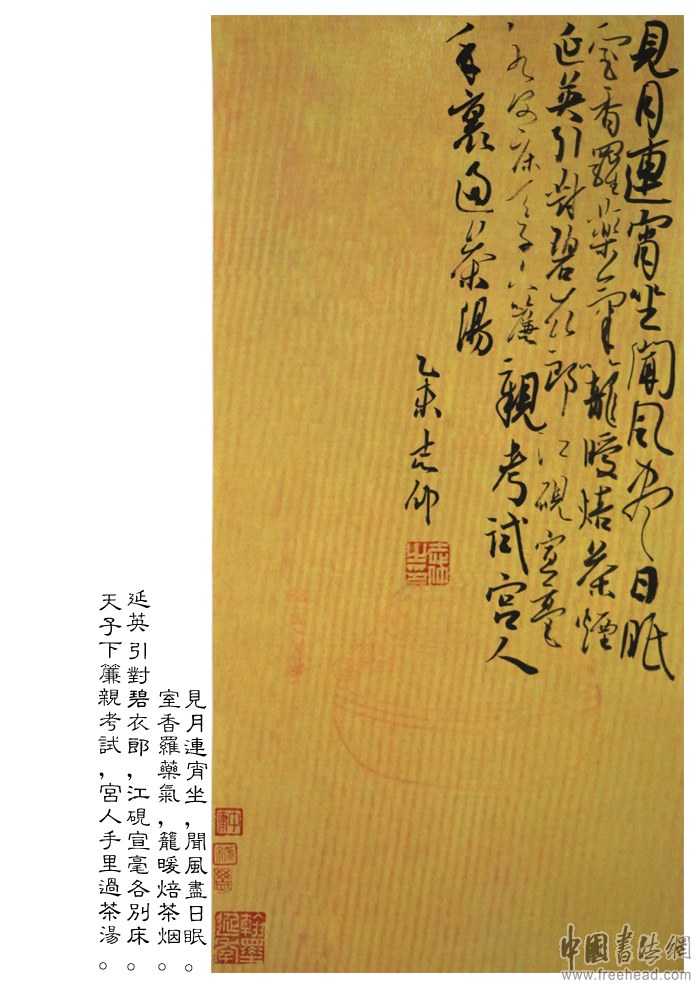 見月連宵坐聞風盡日眠
室香羅藥氣籠暖焙茶煙
延英引對碧衣郎江硯宣毫
各別床天子下簾親考試宮人
手裏過茶湯
乙未
見月連宵坐，聞風盡日眠。
室香羅藥氣，籠暖焙茶烟。
延英引對碧衣郎，江硯宣毫各別床。
天子下簾親考試，宮人手里過茶湯。
中國書法網
www.freehead.com